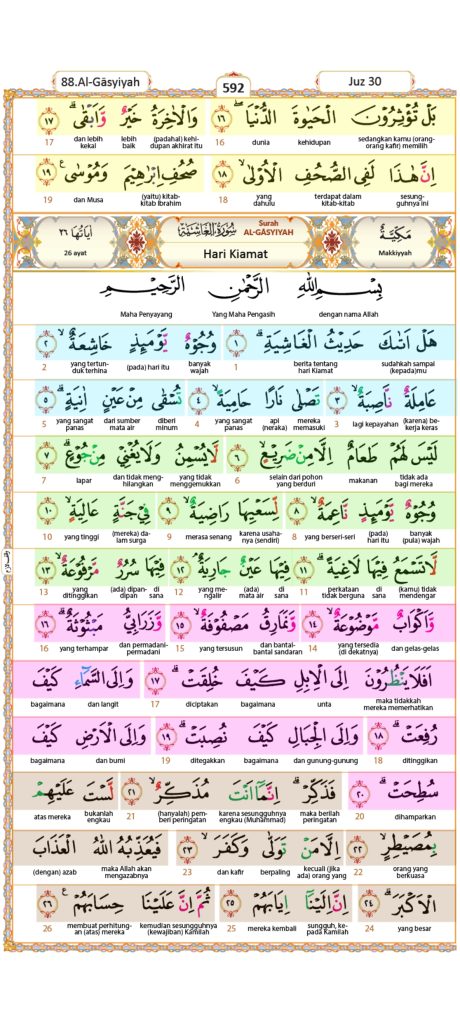 88.Al-Gāsyiyah 592 Juz 30
بَلْ تُؤْثِرُوْنَ الْحَيٰوةَ الدُّنْيَاۖ ١٦ وَالْاٰخِرَةُ خَيْرٌ وَّاَبْقٰىۗ ١٧
sedangkan kamu (orang-orang kafir) memilih kehidupan dunia 16 (padahal) kehidupan akhirat itu lebih baik dan lebih kekal 17
اِنَّ هٰذَا لَفِى الصُّحُفِ الْاُوْلٰىۙ ١٨ صُحُفِ اِبْرٰهِيْمَ وَمُوْسٰى ࣖ ١٩
sesungguhnya ini terdapat dalam kitab-kitab yang dahulu 18 (yaitu) kitab-kitab Ibrahim dan Musa 19
مَكِّيَّةٌ سُوْرَةُ الْغَاشِيَةِ Surah AL-GĀSYIYAH اٰيَاتُهَا ٢٦
Makkiyyah Hari Kiamat 26 ayat
بِسْمِ اللّٰهِ الرَّحْمٰنِ الرَّحِيْمِ
dengan nama Allah Yang Maha Pengasih Maha Penyayang
هَلْ اَتٰىكَ حَدِيْثُ الْغَاشِيَةِۗ ١ وُجُوْهٌ يَّوْمَىِٕذٍ خَاشِعَةٌۙ ٢
sudahkah sampai (kepada)mu berita tentang hari Kiamat 1 banyak wajah (pada) hari itu yang tertunduk terhina 2
عَامِلَةٌ نَّاصِبَةٌۙ ٣ تَصْلٰى نَارًا حَامِيَةًۙ ٤ تُسْقٰى مِنْ عَيْنٍ اٰنِيَةٍۗ ٥
(karena) bekerja keras lagi kepayahan 3 mereka memasuki api (neraka) yang sangat panas 4 diberi minum dari sumber mata air yang sangat panas 5
لَيْسَ لَهُمْ طَعَامٌ اِلَّا مِنْ ضَرِيْعٍۙ ٦ لَّا يُسْمِنُ وَلَا يُغْنِيْ مِنْ جُوْعٍۗ ٧
tidak ada bagi mereka makanan selain dari pohon yang berduri 6 yang tidak menggemukkan dan tidak menghilangkan lapar 7
وُجُوْهٌ يَّوْمَىِٕذٍ نَّاعِمَةٌۙ ٨ لِّسَعْيِهَا رَاضِيَةٌۙ ٩ فِيْ جَنَّةٍ عَالِيَةٍۙ ١٠
banyak (pula) wajah (pada) hari itu yang berseri-seri 8 karena usahanya (sendiri) merasa senang 9 (mereka) dalam surga yang tinggi 10
لَّا تَسْمَعُ فِيْهَا لَاغِيَةًۗ ١١ فِيْهَا عَيْنٌ جَارِيَةٌۘ ١٢ فِيْهَا سُرُرٌ مَّرْفُوْعَةٌۙ ١٣
(kamu) tidak mendengar di sana perkataan tidak berguna 11 di sana (ada) mata air yang mengalir 12 di sana (ada) dipan-dipan yang ditinggikan 13
وَّاَكْوَابٌ مَّوْضُوْعَةٌۙ ١٤ وَّنَمَارِقُ مَصْفُوْفَةٌۙ ١٥ وَّزَرَابِيُّ مَبْثُوْثَةٌۗ ١٦
dan gelas-gelas yang tersedia (di dekatnya) 14 dan bantal-bantal sandaran yang tersusun 15 dan permadani-permadani yang terhampar 16
اَفَلَا يَنْظُرُوْنَ اِلَى الْاِبِلِ كَيْفَ خُلِقَتْۗ ١٧ وَاِلَى السَّمَاۤءِ كَيْفَ
maka tidakkah mereka memerhatikan unta bagaimana diciptakan 17 dan langit bagaimana
رُفِعَتْۗ ١٨ وَاِلَى الْجِبَالِ كَيْفَ نُصِبَتْۗ ١٩ وَاِلَى الْاَرْضِ كَيْفَ
ditinggikan 18 dan gunung-gunung bagaimana ditegakkan 19 dan bumi bagaimana
سُطِحَتْۗ ٢٠ فَذَكِّرْۗ اِنَّمَآ اَنْتَ مُذَكِّرٌۙ ٢١ لَسْتَ عَلَيْهِمْ
dihamparkan 20 maka berilah peringatan karena sesungguhnya engkau (Muhammad) (hanyalah) pemberi peringatan 21 bukanlah engkau atas mereka
بِمُصَيْطِرٍۙ ٢٢ اِلَّا مَنْ تَوَلّٰى وَكَفَرَۙ ٢٣ فَيُعَذِّبُهُ اللّٰهُ الْعَذَابَ
orang yang berkuasa 22 kecuali (jika ada) orang yang berpaling dan kafir 23 maka Allah akan mengazabnya (dengan) azab
الْاَكْبَرَۗ ٢٤ اِنَّ اِلَيْنَآ اِيَابَهُمْ ٢٥ ثُمَّ اِنَّ عَلَيْنَا حِسَابَهُمْ ࣖ ٢٦
yang besar 24 sungguh, kepada Kamilah mereka kembali 25 kemudian sesungguhnya (kewajiban) Kamilah membuat perhitungan (atas) mereka 26